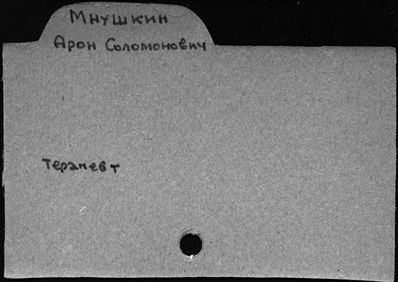 Мнушкин
Арон Соломонович
терапевт